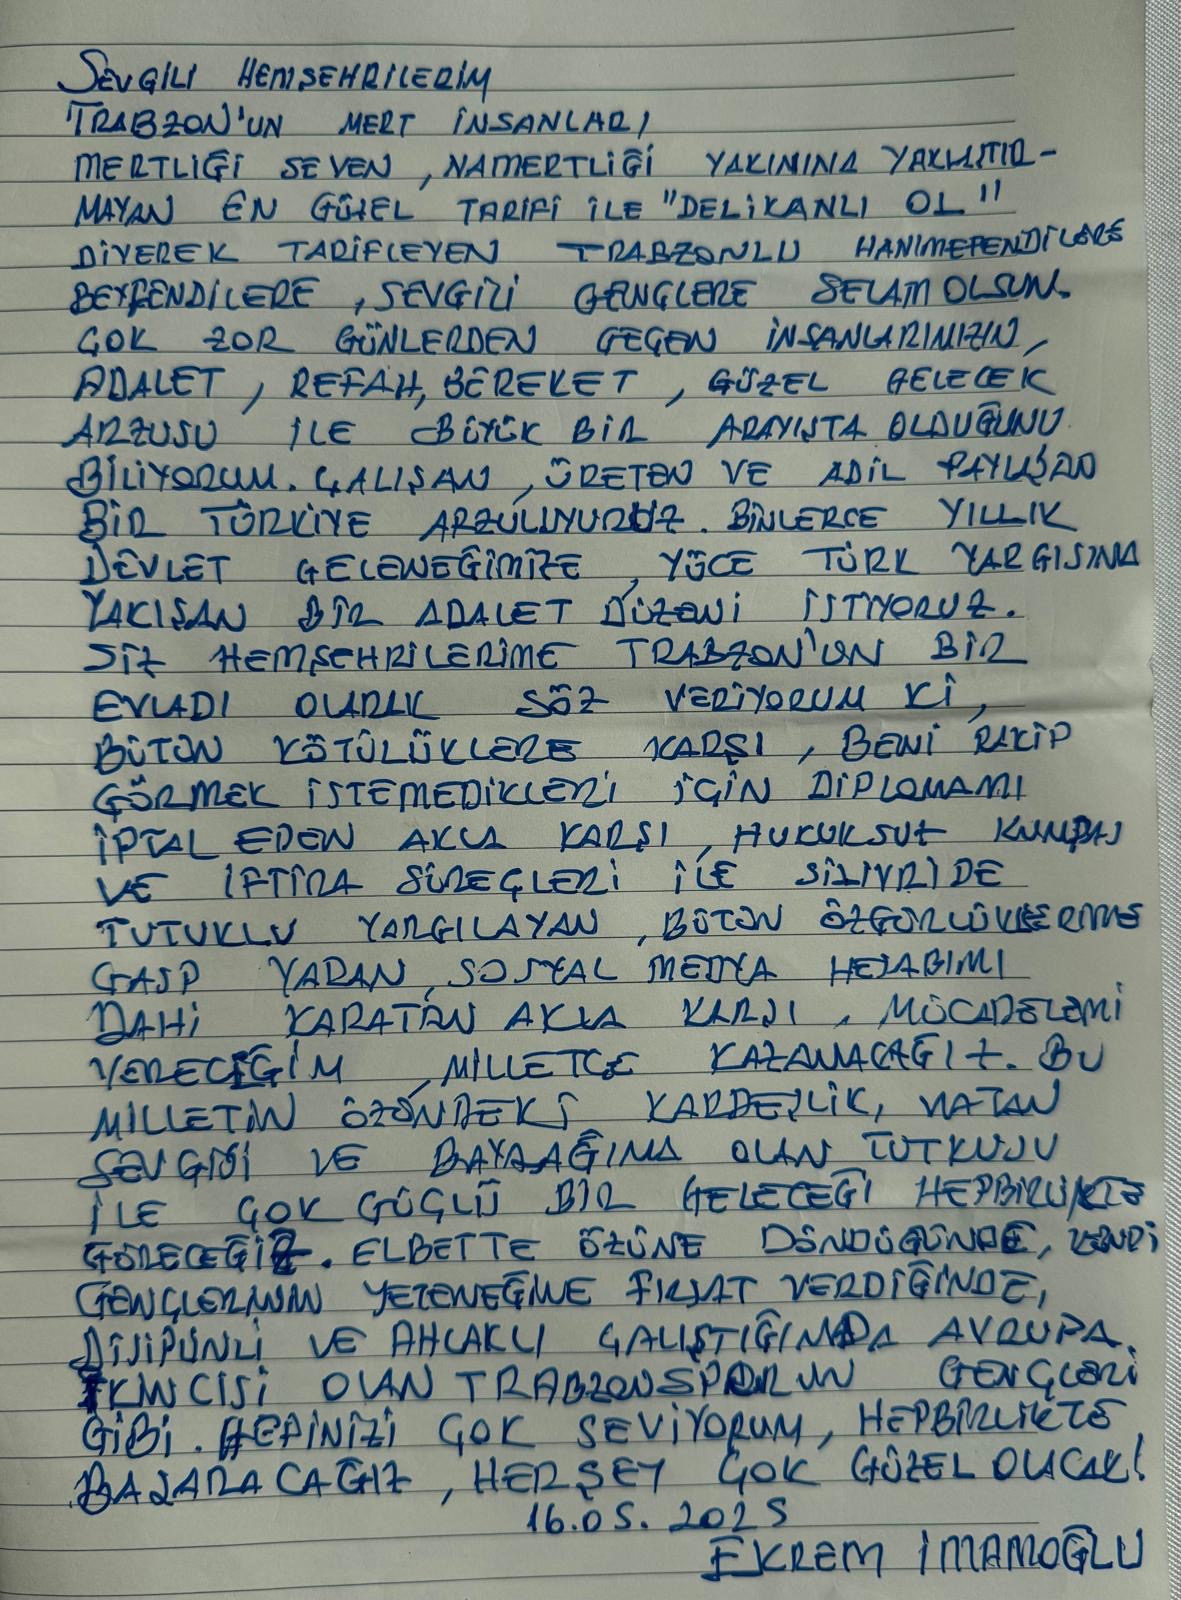 SEVGİLİ HEMŞEHRİLERİM
TRABZON'UN MERT İNSANLARI
MERTLİĞİ SEVEN, NAMERTLİĞİ YAKININA YAKLAŞTIR-
MAYAN EN GÜZEL TARİFİ İLE "DELİKANLI OL"
DİYEREK TARİFLEYEN TRABZONLU HANIMEFENDİLERE
BEYFENDİLERE, SEVGİLİ GENÇLERE SELAM OLSUN.
ÇOK ZOR GÜNLERDEN GEÇEN İNSANLARIMIZIN,
ADALET, REFAH, BEREKET, GÜZEL GELECEK
ARZUSU İLE BÜYÜK BİR ARAYIŞTA OLDUĞUNU
BİLİYORUM. ÇALIŞAN, ÜRETEN VE ADİL PAYLAŞAN
BİR TÜRKİYE ARZULUYURUZ. BİNLERCE YILLIK
DEVLET GELENEĞİMİZE, YÜCE TÜRK YARGISINA
YAKIŞAN BİR ADALET DÜZENİ İSTİYORUZ.
SİZ HEMŞEHRİLERİME TRABZON'UN BİR
EVLADI OLARAK SÖZ VERİYORUM Kİ,
BÜTÜN KÖTÜLÜKLERE KARŞI, BENİ RAKİP
GÖRMEK İSTEMEDİKLERİ İÇİN DİPLOMAMI
İPTAL EDEN AKLA KARŞI, HUKUKSUZ KUMPAS
VE İFTİRA SÜREÇLERİ İLE SİLİVRİDE
TUTUKLU YARGILAYAN, BÜTÜN ÖZGÜRLÜKLERİME
GASP YAPAN, SOSYAL MEDYA HESABIMI
DAHİ KARATAN AKLA KARŞI, MÜCADELEMİ
VERECEĞİM, MİLLETÇE KAZANACAĞIZ. BU
MİLLETİN ÖZÜNDEKİ KARDEŞLİK, VATAN
SEVGİSİ VE BAYRAĞINA OLAN TUTKUSU
İLE ÇOK GÜÇLÜ BİR GELECEĞİ HEPBİRLİKTE
GÖRECEĞİZ. ELBETTE ÖZÜNE DÖNDÜĞÜNDE, KENDİ
GENÇLERİNİN YETENEĞİNE FIRSAT VERDİĞİNDE,
DİSİPLİNLİ VE AHLAKLI ÇALIŞTIĞINDA AVRUPA
İKİNCİSİ OLAN TRABZONSPORUN GENÇLERİ
GİBİ. HEPİNİZİ ÇOK SEVİYORUM, HEPBİRLİKTE
BAŞARACAĞIZ, HERŞEY ÇOK GÜZEL OLACAK!
16.05.2025
EKREM İMAMOĞLU